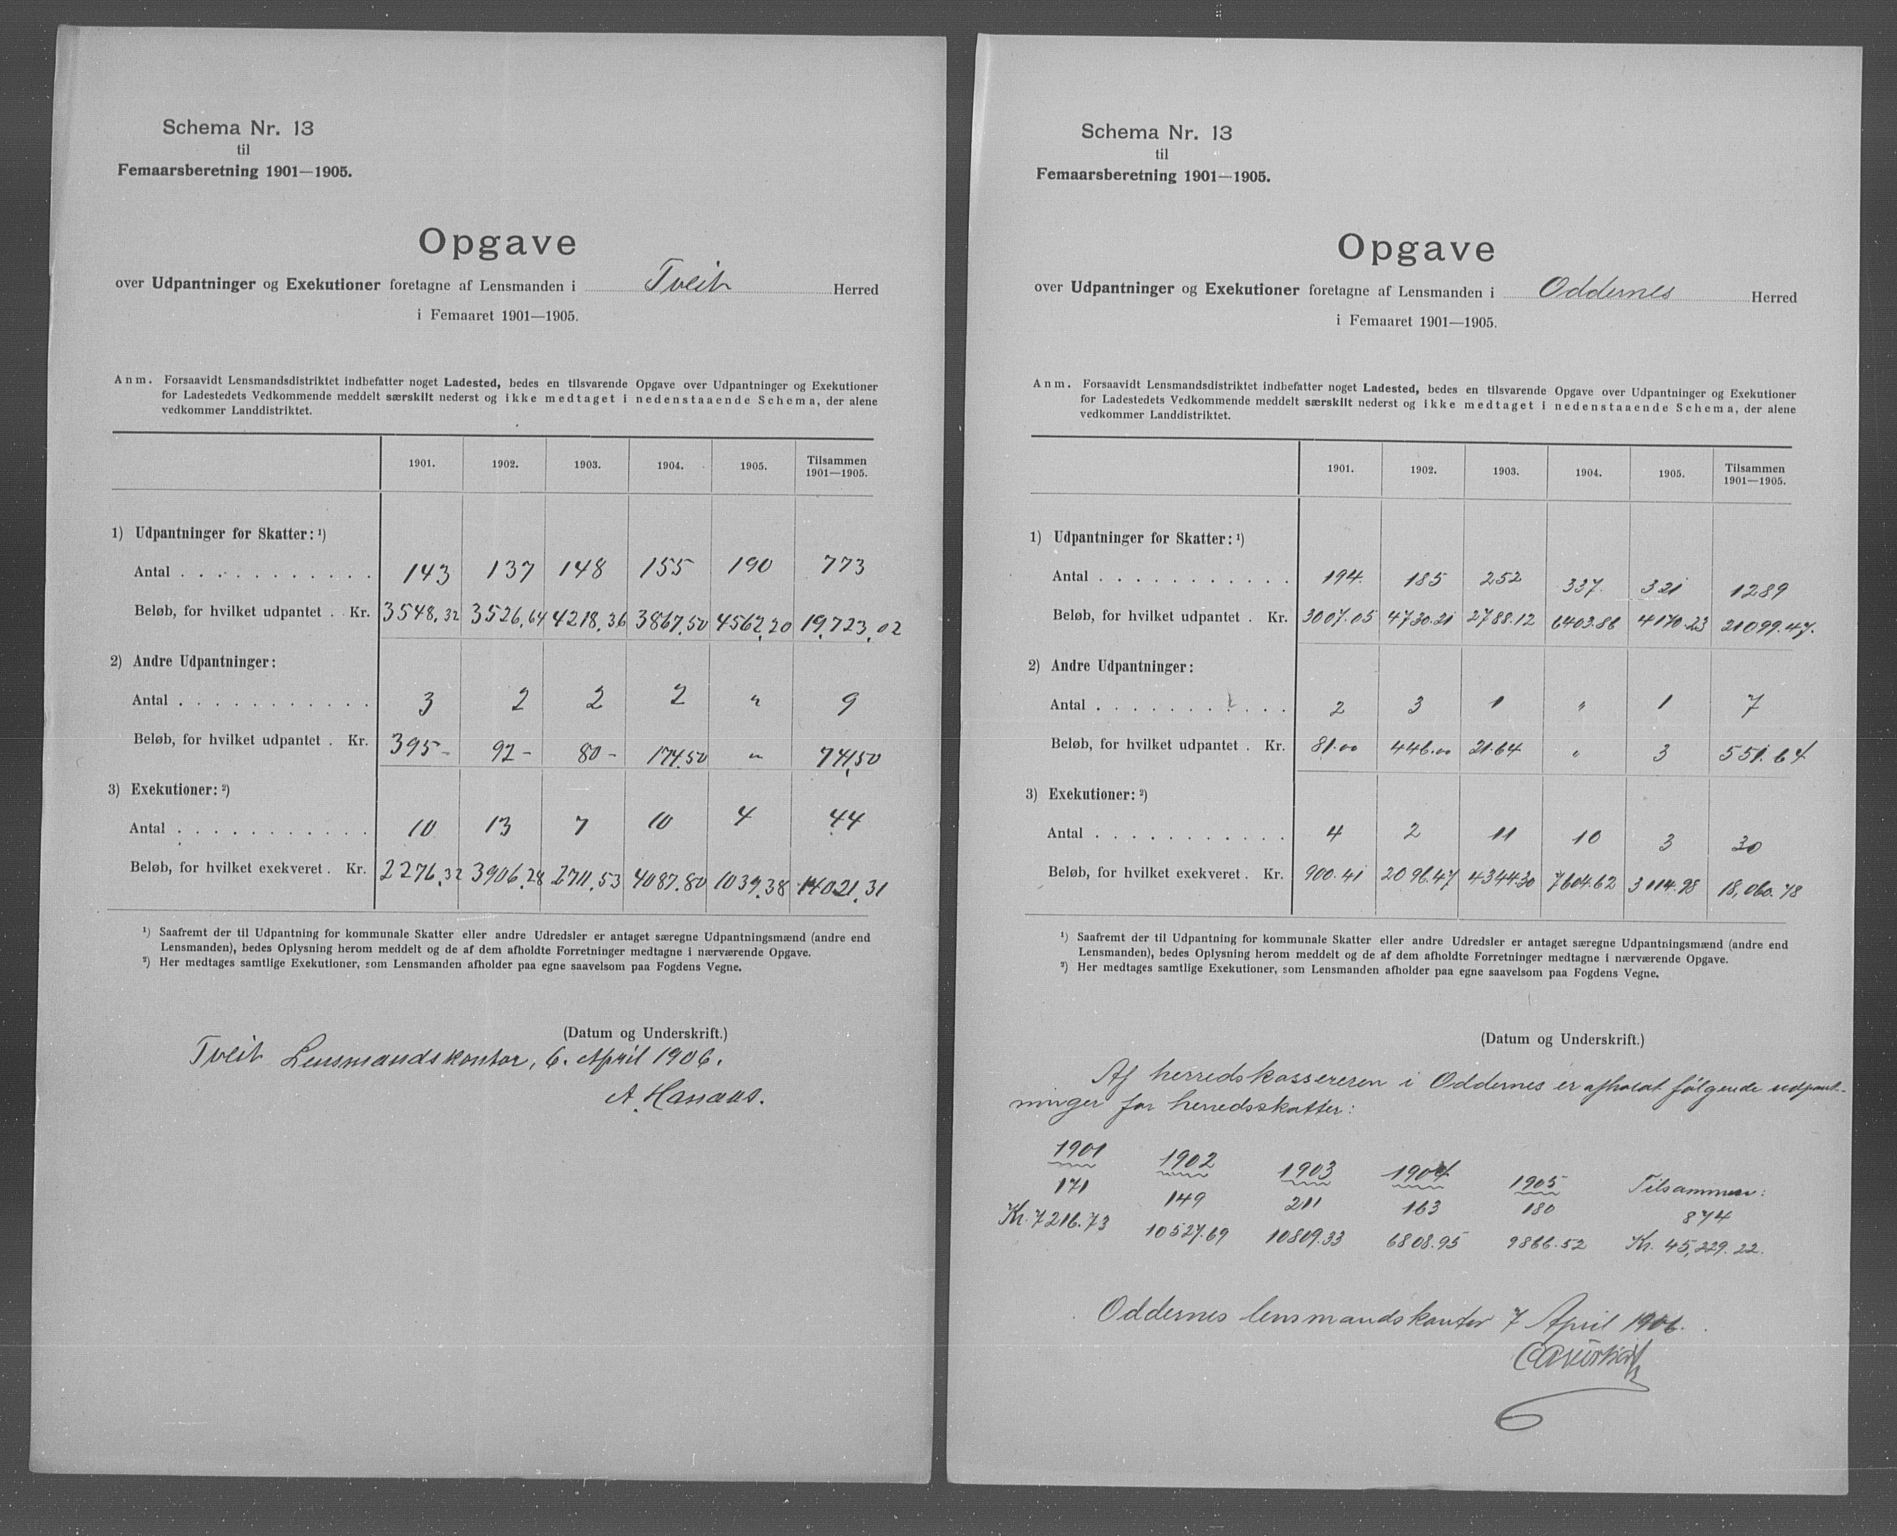 Schema Nr. 13
til
Femaarsberetning 1901—1905.
Opgave
over Udpantninger og Exekutioner foretagne af Lensmanden i Tveit Herred
i Femaaret 1901—1905.
Anm. Forsaavidt Lensmandsdistriktet indbefatter noget Ladested, bedes en tilsvarende Opgave over Udpantninger og Exekutioner
for Ladestedets Vedkommende meddelt særskilt nederst og ikke medtaget i nedenstaaende Schema, der alene
vedkommer Landdistriktet.
1901. 1902. 1903. 1904. 1905. Tilsammen
1901—1905.
1) Udpantninger for Skatter: ¹)
Antal . . . . . . . . . . . 143 137 148 155 190 773
Beløb, for hvilket udpantet . Kr. 3548,32 3526,64 4218,36 3867,50 4562,20 19,723,02
2) Andre Udpantninger:
Antal . . . . . . . . . . . 3 2 2 2 " 9
Beløb, for hvilket udpantet . Kr. 395- 92- 80- 174.50 " 741,50
3) Exekutioner: ²)
Antal . . . . . . . . . . . 10 13 7 10 4 44
Beløb, for hvilket exekveret . Kr. 2276,32 3906,28 2711,53 4087.80 1039,38 14021,31
¹) Saafremt der til Udpantning for kommunale Skatter eller andre Udredsler er antaget særegne Udpantningsmænd (andre end
Lensmanden), bedes Oplysning herom meddelt og de af dem afholdte Forretninger medtagne i nærværende Opgave.
²) Her medtages samtlige Exekutioner, som Lensmanden afholder paa egne saavelsom paa Fogdens Vegne.
(Datum og Underskrift.)
Tveit Lensmandskontor, 6. April 1906.
A.
Schema Nr. 13
til
Femaarsberetning 1901—1905.
Opgave
over Udpantninger og Exekutioner foretagne af Lensmanden i Oddernes Herred
i Femaaret 1901—1905.
Anm. Forsaavidt Lensmandsdistriktet indbefatter noget Ladested, bedes en tilsvarende Opgave over Udpantninger og Exekutioner
for Ladestedets Vedkommende meddelt særskilt nederst og ikke medtaget i nedenstaaende Schema, der alene
vedkommer Landdistriktet.
1901. 1902. 1903. 1904. 1905. Tilsammen
1901—1905.
1) Udpantninger for Skatter: ¹)
Antal . . . . . . . . . . . 194. 185 252 337. 321 1289
Beløb, for hvilket udpantet . Kr. 3007.05 4730.21 2788.12 6403.86 4170.23 21099.47.
2) Andre Udpantninger:
Antal . . . . . . . . . . . 2 3 1 " 1 7
Beløb, for hvilket udpantet . Kr. 81.00 446.00 21.64 " 3 551.64
3) Exekutioner: ²)
Antal . . . . . . . . . . . 4 2 11 10 3 30
Beløb, for hvilket exekveret . Kr. 900.41 2096.47 4344.30 7604.62 3114.98 18,060.78
¹) Saafremt der til Udpantning for kommunale Skatter eller andre Udredsler er antaget særegne Udpantningsmænd (andre end
Lensmanden), bedes Oplysning herom meddelt og de af dem afholdte Forretninger medtagne i nærværende Opgave.
²) Her medtages samtlige Exekutioner, som Lensmanden afholder paa egne saavelsom paa Fogdens Vegne.
(Datum og Underskrift.)
Af herredskassereren i Oddernes er afholdt følgende udpant-
ninger for herredsskatter:
1901 1902 1903 1904 1905 Tilsammen:
171 149 211 163 180 874
Kr. 7216.73 10527.69 10809.33 6808.95 9866.52 Kr. 45,229.22.
Oddernes lensmandskontor 7 April 1906.